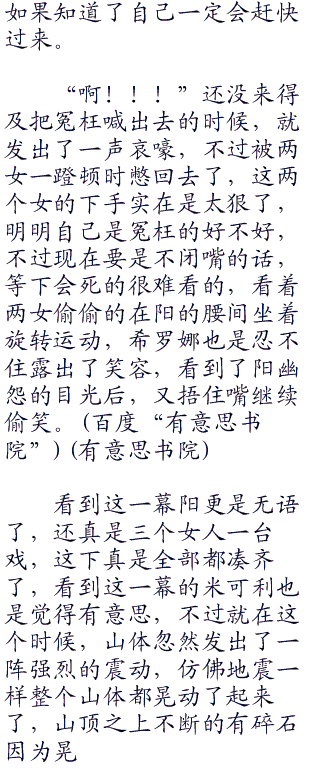 如果知道了自己一定会赶快
过来。
“啊！！！”还没来得
及把冤枉喊出去的时候，就
发出了一声哀嚎，不过被两
女一蹬顿时憋回去了，这两
个女的下手实在是太狠了，
明明自己是冤枉的好不好，
不过现在要是不闭嘴的话，
等下会死的很难看的，看着
两女偷偷的在阳的腰间坐着
旋转运动，希罗娜也是忍不
住露出了笑容，看到了阳幽
怨的目光后，又捂住嘴继续
偷笑。(百度“有意思书
院”)(有意思书院)
看到这一幕阳更是无语
了，还真是三个女人一台
戏，这下真是全部都凑齐
了，看到这一幕的米可利也
是觉得有意思，不过就在这
个时候，山体忽然发出了一
阵强烈的震动，仿佛地震一
样整个山体都晃动了起来
了，山顶之上不断的有碎石
因为晃